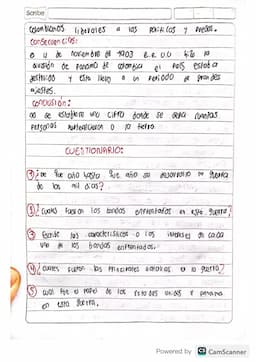 Scribe
colombianos literales a las políticas y medos.
consecuencias:
o 4 de noviembre de 1903 E.E.U.U
división de Panamá de colombia el país estaba
destruido y esto llevó a un periodo de grandes
ajustes.
conclusión:
no se establece una cifra donde se sepa cuantas
personas la guerra.
CUESTIONARIO:
① ¿De que año hasta que año se desarrollo la guerra
de los mil días?
② ¿Cuáles fueron los bandos enfrentados en esta guerra?
③ Escribe las características o los intereses de cada
uno de los bandos enfrentados.
④ ¿Cuáles fueron las principales batallas en la guerra?
⑤ Cual fue el papel de los Estados unidos y panamá
en esta guerra.
Powered by CS CamScanner